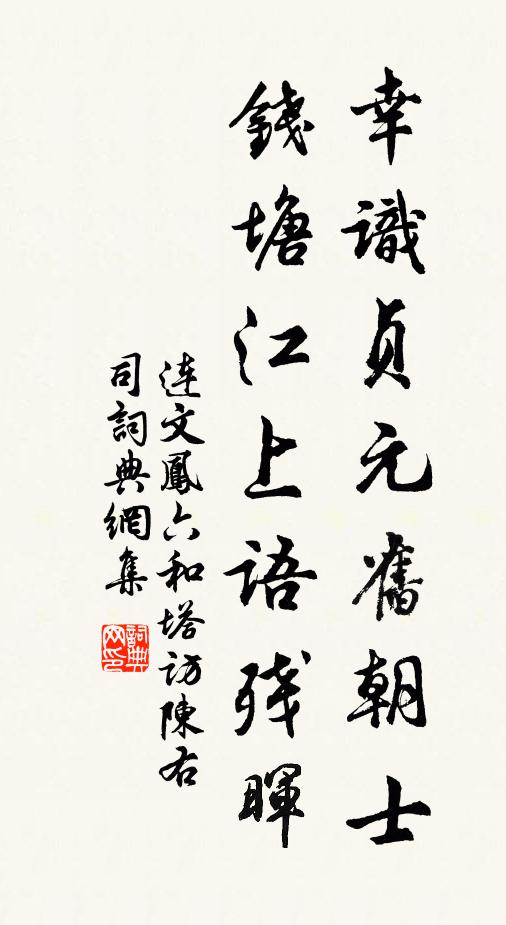 幸識貞元舊朝士
錢塘江上語殘暉
連文鳳六和塔訪陳右
司詞典網集
詞典網印